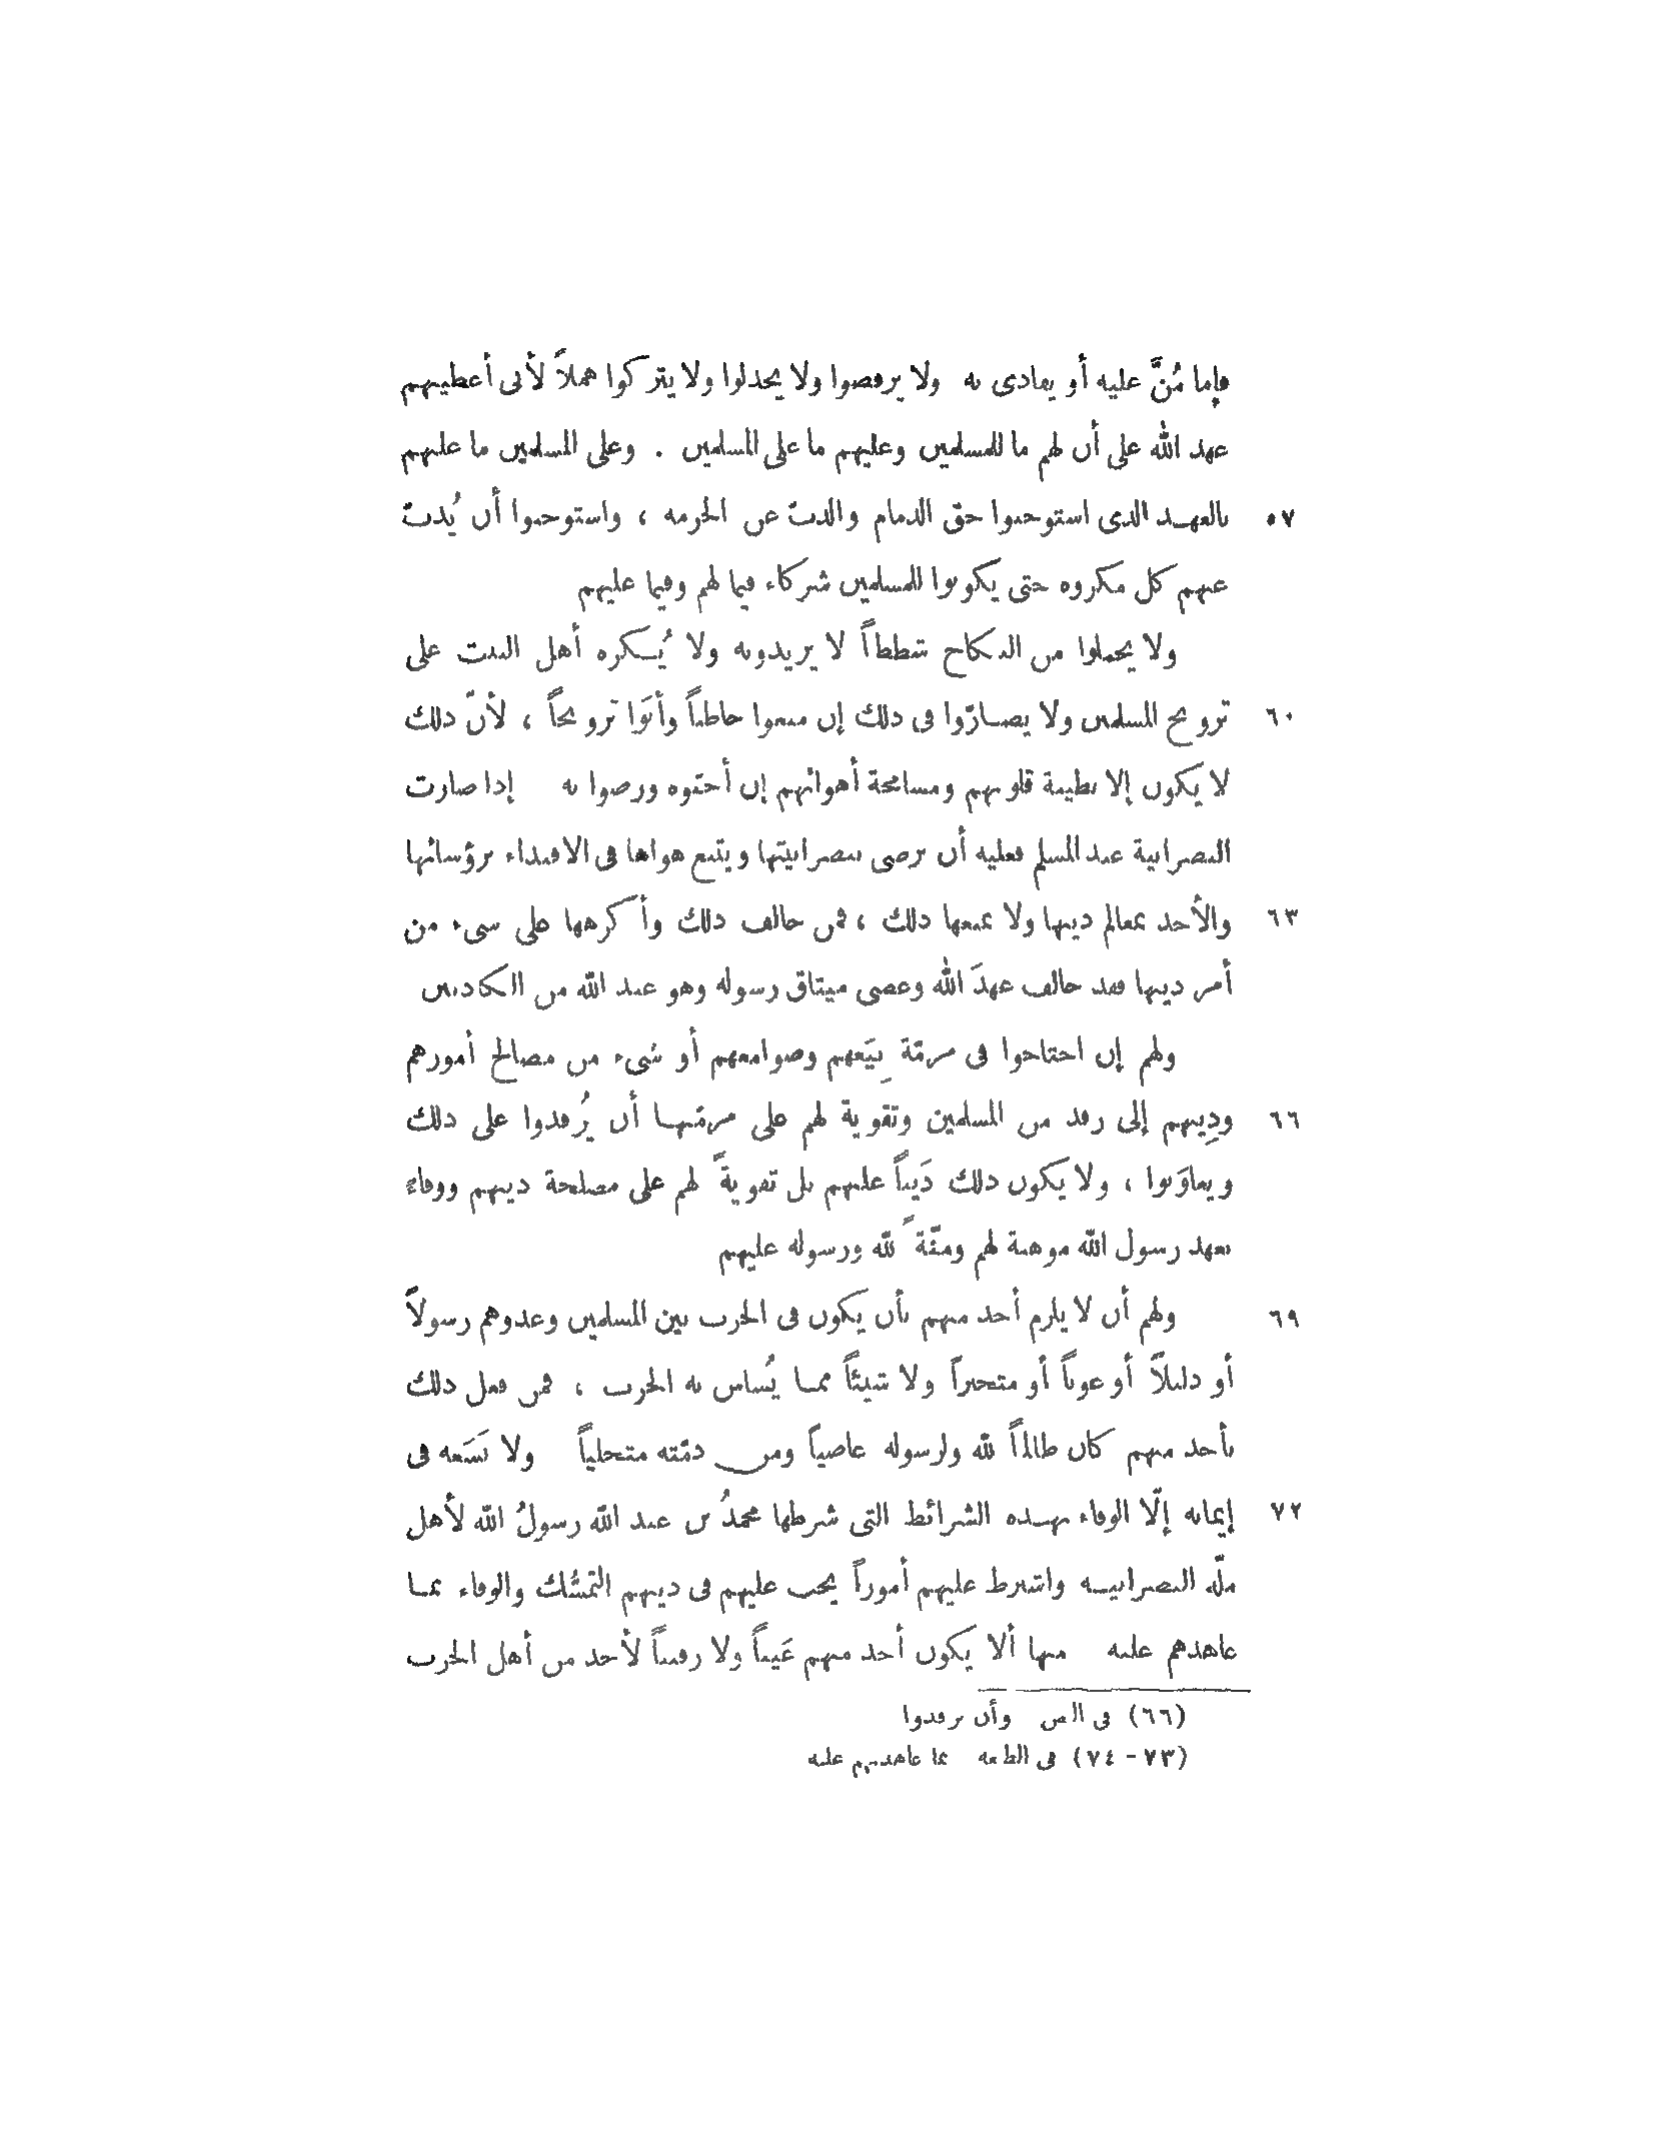 فإما مُنَّ عليه أو يفادى به ولا يرفضوا ولا يخذلوا ولا يتركوا هملاً لأنى أعطيتهم
عهد الله على أن لهم ما للمسلمين وعليهم ما على المسلمين . وعلى المسلمين ما عليهم
٥٧ بالعهد الذى استوجبوا حق الذمام والذبّ عن الحرمه ، واستوجبوا أن يُذبّ
عنهم كل مكروه حتى يكونوا للمسلمين شركاء فيما لهم وفيما عليهم
ولا يحملوا من النكاح شططاً لا يريدونه ولا يُكره أهل البنت على
٦٠ تزويج المسلمين ولا يضارّوا فى ذلك إن منعوا خاطباً وأبَوا تزويجاً ، لأنّ ذلك
لا يكون إلا بطيبة قلوبهم ومسامحة أهوائهم إن أحبّوه ورضوا به إذا صارت
النصرانية عند المسلم فعليه أن يرضى بنصرانيتها ويتبع هواها فى الاقتداء برؤسائها
٦٣ والأخذ بمعالم دينها ولا يمنعها ذلك ، فمن خالف ذلك وأكرهها على شىء من
أمر دينها فقد خالف عهدَ الله وعصى ميثاق رسوله وهو عند الله من الكاذبين
ولهم إن احتاجوا فى مرمّة بِيَعهم وصوامعهم أو شىء من مصالح أمورهم
٦٦ ودِينهم إلى رفد من المسلمين وتقوية لهم على مرمّتها أن يُرفدوا على ذلك
ويعاوَنوا ، ولا يكون ذلك دَيناً عليهم بل تقويةً لهم على مصلحة دينهم ووفاءً
بعهد رسول الله موهبة لهم ومنّةً لله ورسوله عليهم
٦٩ ولهم أن لا يلزم أحد منهم بأن يكون فى الحرب بين المسلمين وعدوهم رسولاً
أو دليلاً أو عوناً أو متخبراً ولا شيئاً مما يُساس به الحرب ، فمن فعل ذلك
بأحد منهم كان ظالماً لله ولرسوله عاصياً ومن ذمّته متخلياً ولا تَسَعه فى
٧٢ إيمانه إلّا الوفاء بهذه الشرائط التى شرطها محمدُ بن عبد الله رسولُ الله لأهل
ملّة النصرانية واشترط عليهم أموراً يجب عليهم فى دينهم التمسُّك والوفاء بما
عاهدهم عليه منها ألا يكون أحد منهم عَيناً ولا رقيباً لأحد من أهل الحرب
(٦٦) فى النص وأن يرفدوا
(٧٣ - ٧٤) فى الطبعة بما عاهدتهم عليه